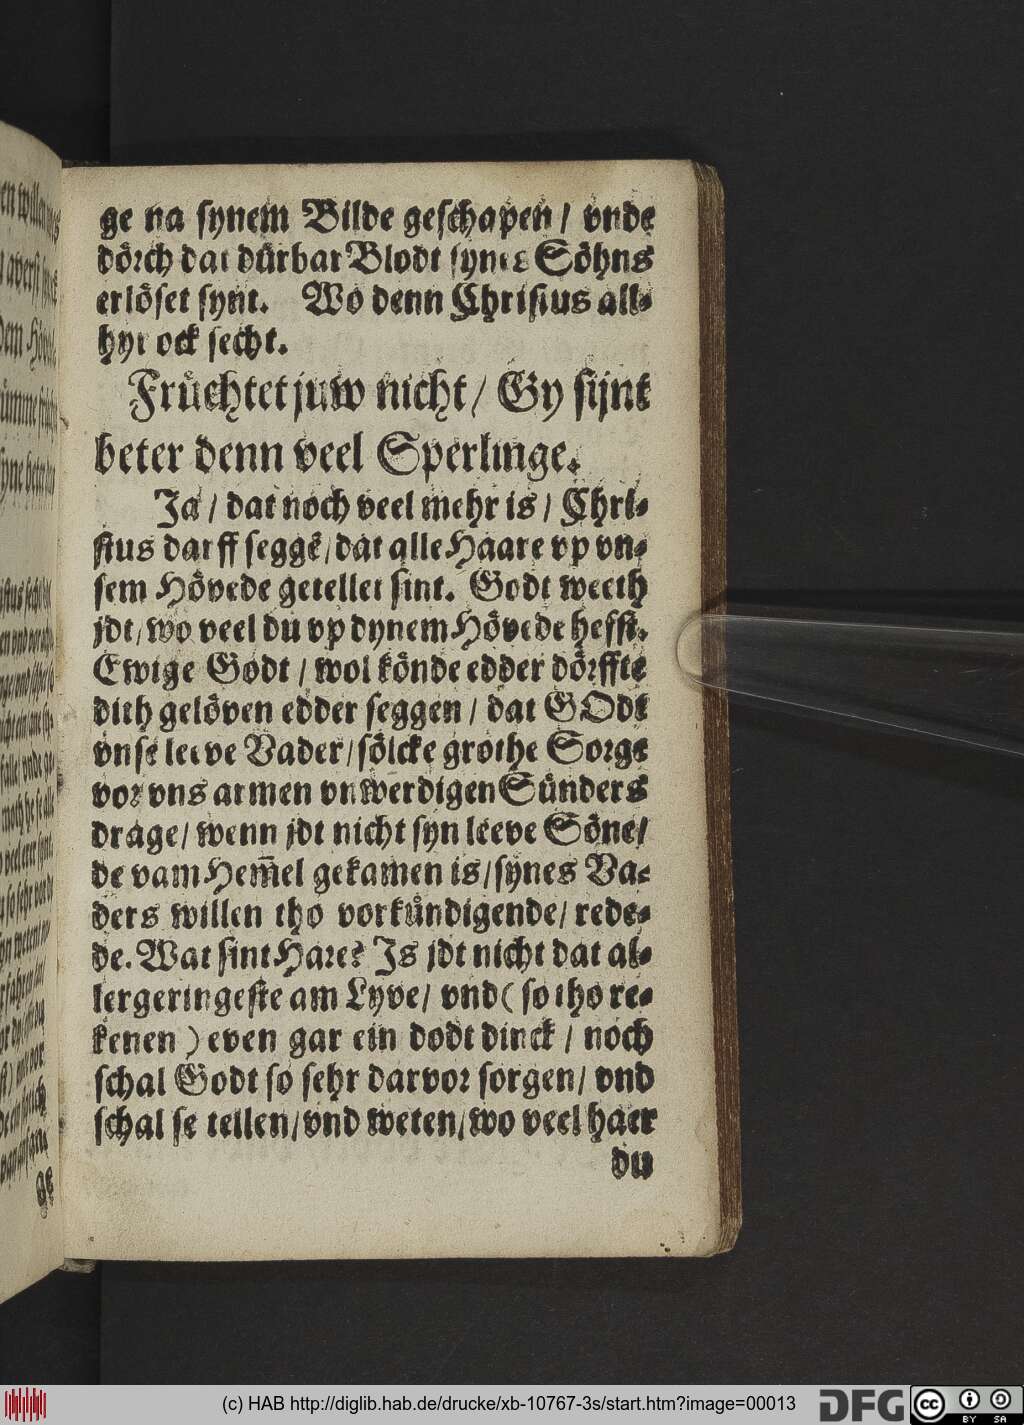 ge na synem Bilde geschapen / vnde
dörch dat dürbar Blodt synes Söhns
erlöset synt. Wo denn Christus all-
hyr ock secht.
Früchtet juw nicht / Gy sijnt
beter denn veel Sperlinge.
Ja / dat noch veel mehr is / Chri-
stus darff seggē / dat alle Haare vp vn-
sem Hövede getellet sint. Godt weeth
jdt / wo veel du vp dynem Hövede heffst.
Ewige Godt / wol könde edder dörffte
dith gelöven edder seggen / dat GOdt
vnse leeve Vader / sölcke grothe Sorge
vor vns armen vnwerdigen Sünders
drage / wenn jdt nicht syn leeve Söne /
de vam Hem̃el gekamen is / synes Va-
ders willen tho vorkündigende / rede-
de. Wat sint Hare? Is jdt nicht dat al-
lergeringeste am Lyve / vnd ( so tho re-
kenen ) even gar ein dodt dinck / noch
schal Godt so sehr darvor sorgen / vnd
schal se tellen / vnd weten / wo veel haer
du
(c) HAB http://diglib.hab.de/drucke/xb-10767-3s/start.htm?image=00013
DFG
cc BY SA